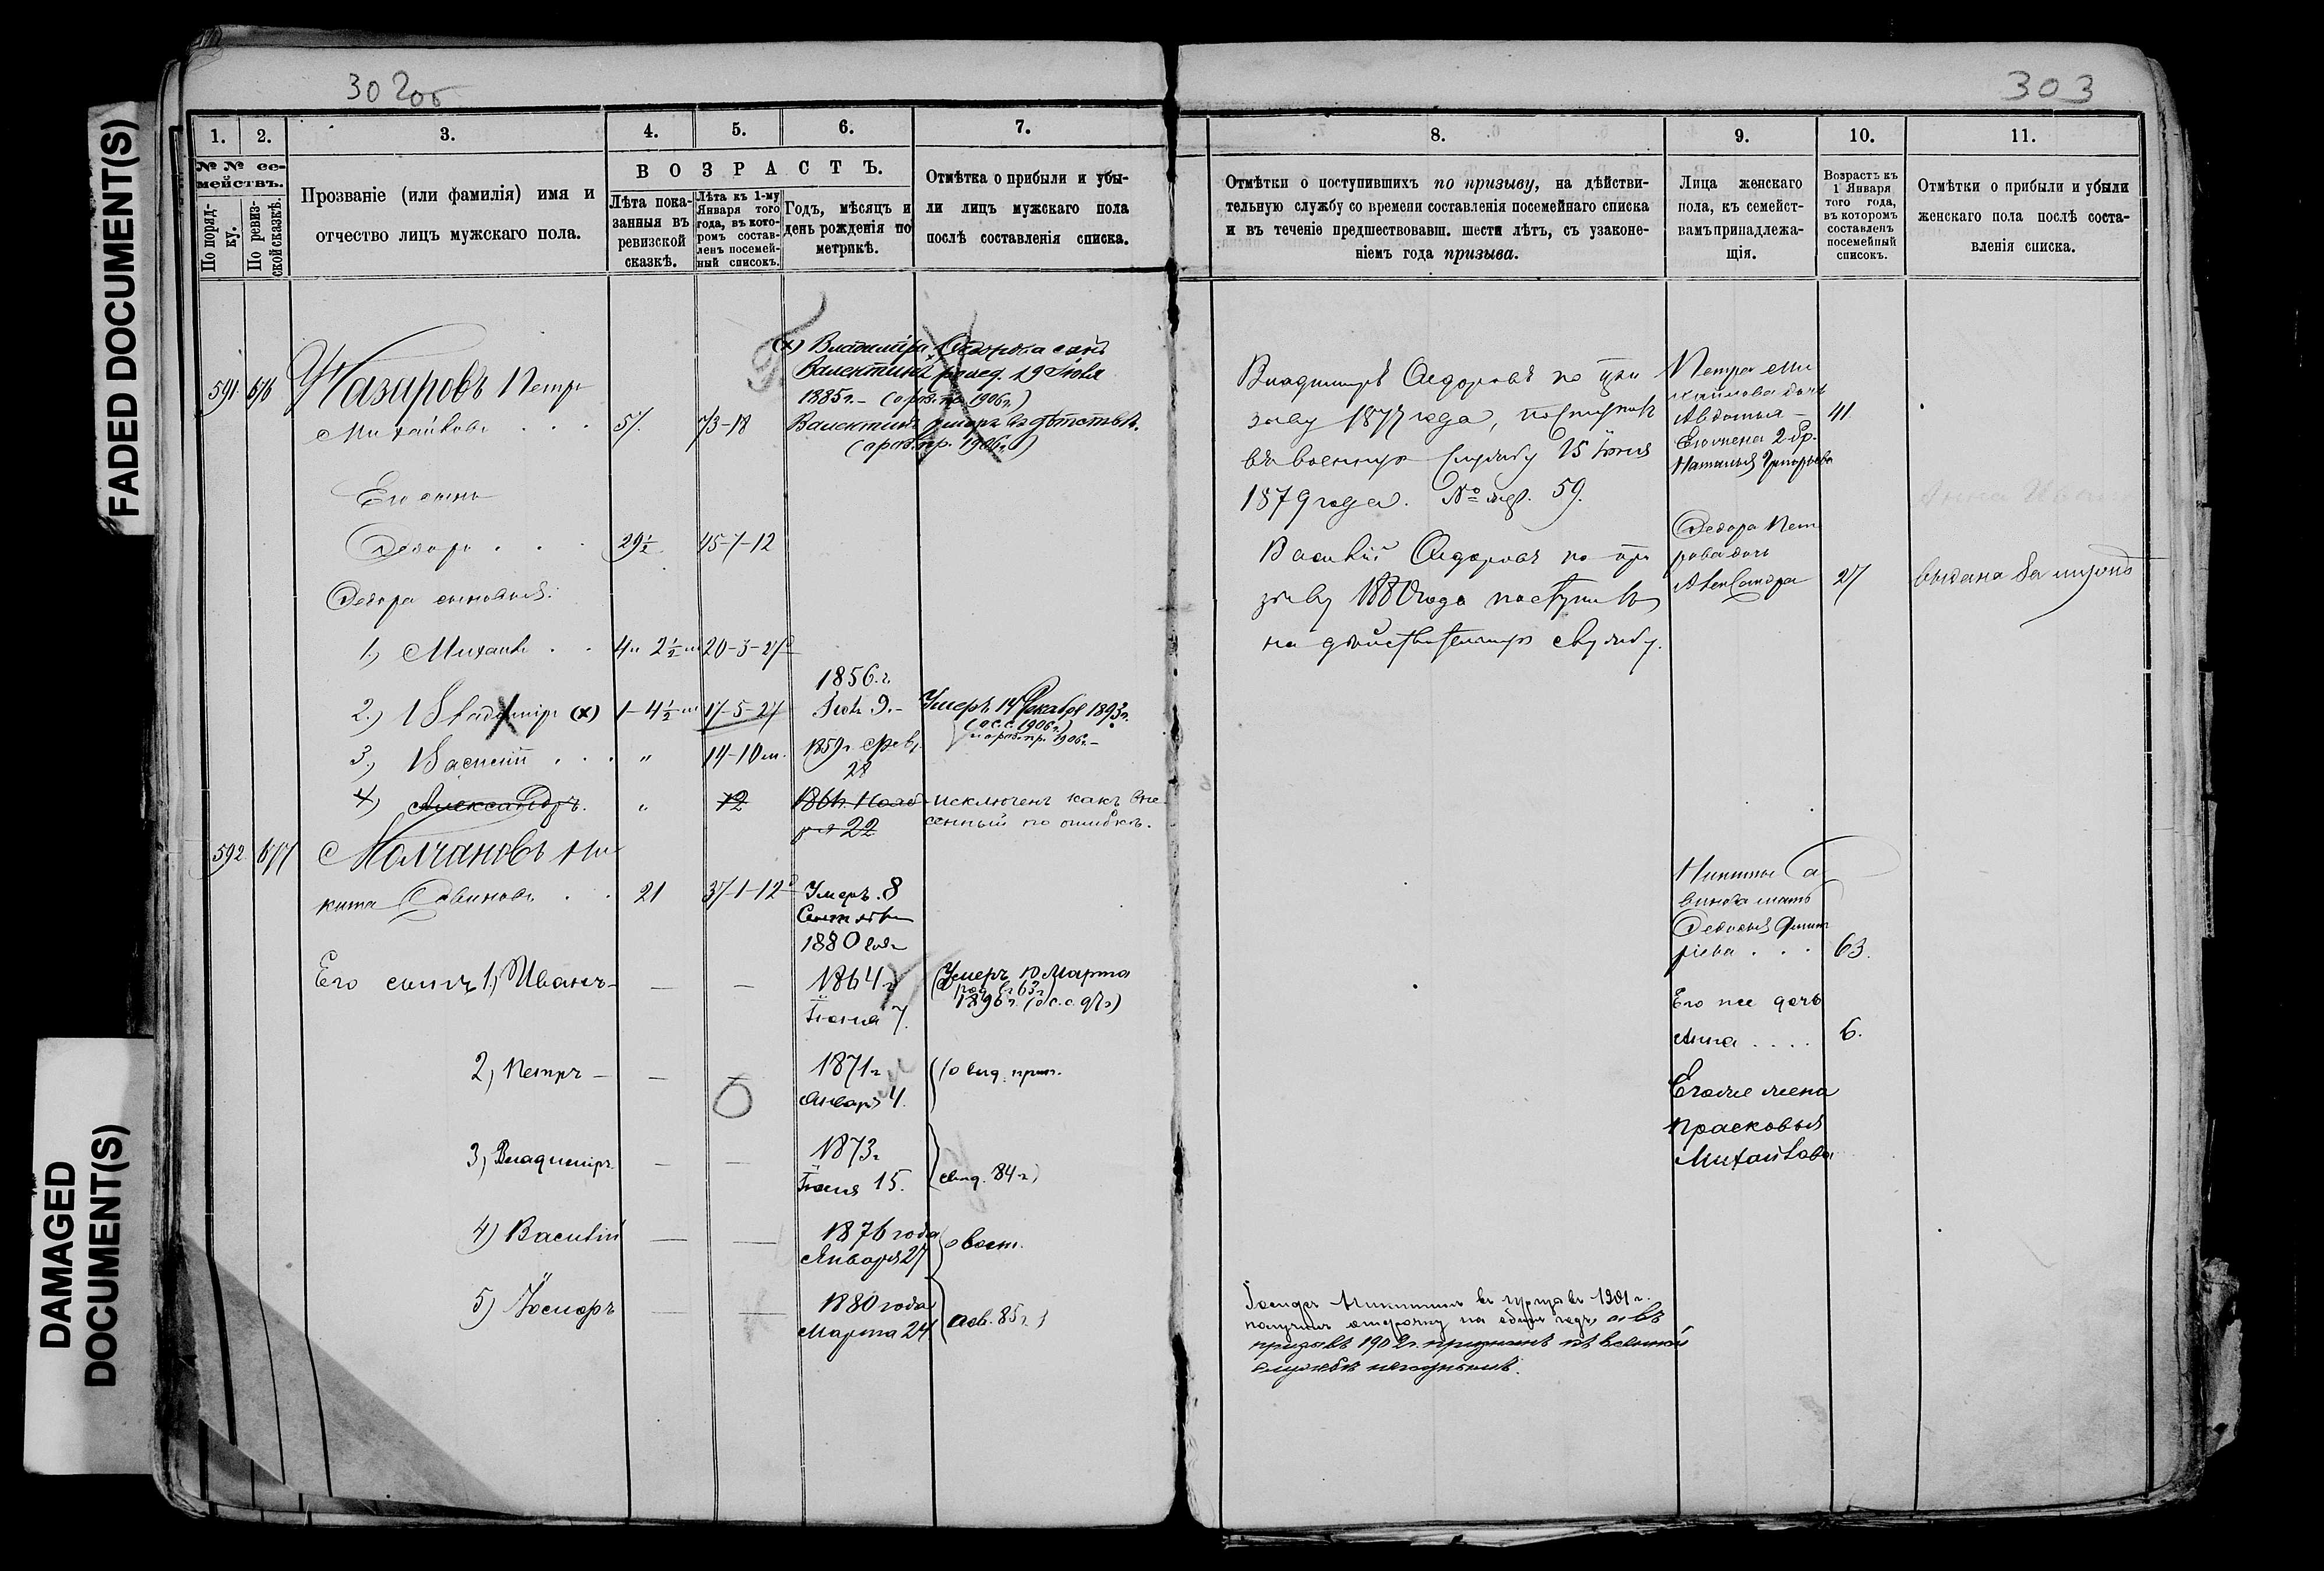 FADED DOCUMENT(S)
DAMAGED
DOCUMENT(S)
302об
1.
2.
3.
4.
5.
6.
7.
№ № се-
мействъ.
По поряд-
ку.
По ревиз-
ской сказкѣ.
Прозваніе (или фамилія) имя и
отчество лицъ мужскаго пола.
ВОЗРАСТЪ.
Лѣта пока-
занныя въ
ревизской
сказкѣ.
Лѣта къ 1-му
Января того
года, въ кото-
ромъ состав-
ленъ посемей-
ный списокъ.
Годъ, мѣсяцъ и
день рожденія по
метрикѣ.
Отмѣтка о прибыли и убы-
ли лицъ мужскаго пола
послѣ составленія списка.
(х) Владиміра Ѳедорова сынъ
Валентинъ 19 Іюля
1885 г. 1906 г.)
Валентинъ умеръ въ дѣтствѣ.
1906 г.)
591 676 Назаровъ Петръ
Михайловъ 57. 73-18
Его сынъ
Ѳедоръ 29½ 45-7-12
Ѳедора сыновья:
1.) Михаилъ 20-3-27
1856 г.
2.) Владиміръ (х) 1-4½ м 17-5-27 9. Умеръ 14 Декабря 1893 г.
1906 г.)
1906 г.
3.) Василій " 14-10 м. 1859 г. Февр.
28
4) Александръ. " 12 22
исключенъ какъ вне-
сенный по ошибкѣ.
592 677 Молчановъ Ни
кита Савиновъ 21 37-1-12 Умеръ 8
Сентября
1880 года
Его сынъ 1) Иванъ — — — 1864 г.
Іюня 7.
Умеръ 10 Марта
1896 г.
2) Петръ — — — 1871 г.
Января 4.
3) Владиміръ — — 1873 г.
Іюня 15.
84 г.)
4) Василій — — 1876 года
Января 27
5) Іосифъ — — 1880 года
Марта 24
85 г.)
303
8.
9.
10.
11.
Отмѣтки о поступившихъ по призыву, на дѣйстви-
тельную службу со времени составленія посемейнаго списка
и въ теченіе предшествовавш. шести лѣтъ, съ узаконе-
ніемъ года призыва.
Лица женскаго
пола, къ семейст-
вамъ принадлежа-
щія.
Возрастъ къ
1 Января
того года,
въ которомъ
составленъ
посемейный
списокъ.
Отмѣтки о прибыли и убыли
женскаго пола послѣ соста-
вленія списка.
Владиміръ Ѳедоровъ по при
зыву 1877 года, поступилъ
въ военную службу 25 Іюня
1879 года. № 59.
Василій Ѳедоровъ по при
зыву 1880 года поступилъ
на дѣйствительную службу.
Петра Ми
хайлова дочь
Авдотья — 41.
Его жена 2 бр.
Наталья Григорьева
Ѳедора Пет
рова дочь
Александра 27 выдана замужъ
Никиты Са
винова мать
Ѳедосья Дмит
ріева 63.
Его же дочь
Анна 6.
Его же жена
Прасковья
Михайлова
Іосифъ Никитинъ въ призывъ 1901 г.
получилъ отсрочку на одинъ годъ, а въ
призывъ 1902 г. признанъ къ военной
службѣ негоднымъ.